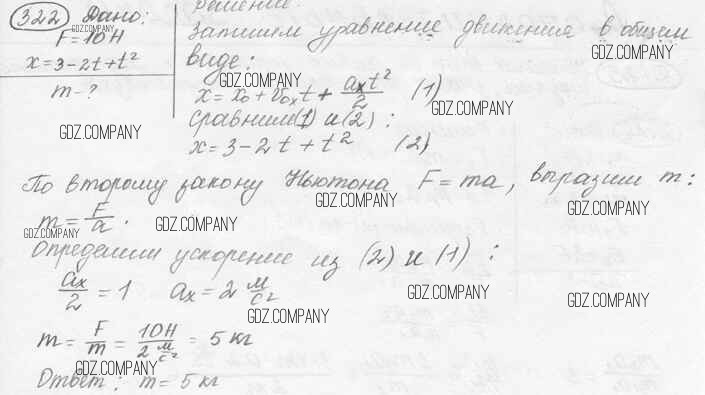 322 Дано:
F=10Н
x=3-2t+t²
m-?
Решение.
Запишем уравнение движения в общем
виде:
x=x₀+v₀ₓt+aₓt²/2 (1)
Сравним (1) и (2):
x=3-2t+t² (2)
По второму закону Ньютона F=ma, выразим m:
m=F/a.
Определим ускорение из (2) и (1):
aₓ/2=1 aₓ=2 м/с²
m=F/m=10Н/2 м/с²=5 кг
Ответ: m=5 кг
GDZ.COMPANY
GDZ.COMPANY
GDZ.COMPANY
GDZ.COMPANY
GDZ.COMPANY
GDZ.COMPANY
GDZ.COMPANY
GDZ.COMPANY
GDZ.COMPANY
GDZ.COMPANY
GDZ.COMPANY
GDZ.COMPANY
GDZ.COMPANY
GDZ.COMPANY